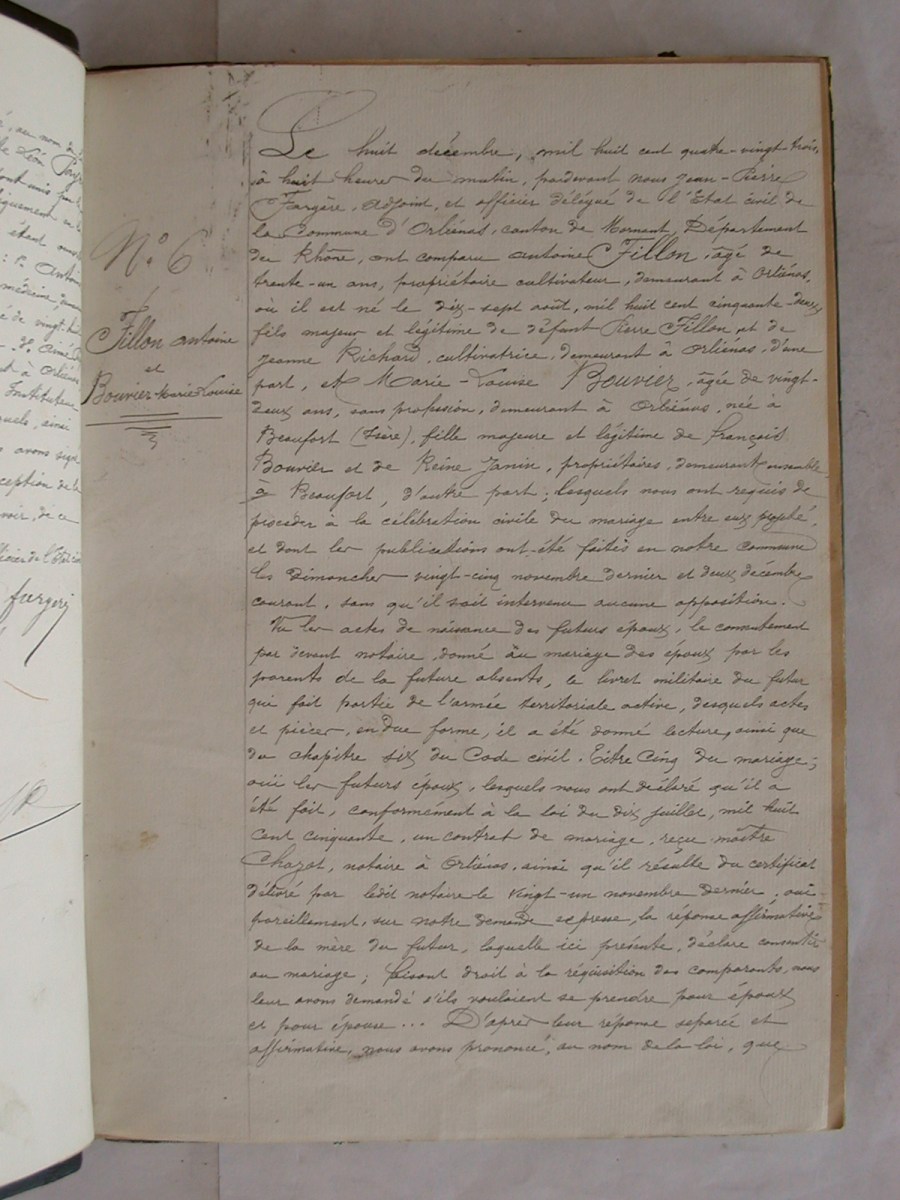 Le huit décembre, mil huit cent quatre-vingt trois,
à huit heures du matin, pardevant nous Jean-Pierre
Fargère, adjoint, et officier délégué de l'Etat civil de
la Commune d'Orliénas, canton de Mornant, Département
du Rhône, ont comparu antoine Fillon, âgé de
trente-un ans, propriétaire cultivateur, demeurant à Orliénas,
où il est né le dix-sept août, mil huit cent cinquante-deux,
fils majeur et légitime de défunt Pierre Fillon, et de
Jeanne Richard, cultivatrice, demeurant à Orliénas, d'une
part, et Marie-Louise Bouvier, âgée de vingt-
deux ans, sans profession, demeurant à Orliénas, née à
Beaufort (Isère), fille majeure et légitime de françois
Bouvier et de Reine Janin, propriétaires, demeurant ensemble
à Beaufort, d'autre part; lesquels nous ont requis de
procéder à la célébration civile du mariage entre eux projeté,
et dont les publications ont été faites en notre commune
les Dimanches vingt-cinq novembre dernier et deux décembre
courant, sans qu'il soit intervenu aucune opposition.
Vu les actes de naissance des futurs époux, le consentement
par devant notaire, donné au mariage des époux par les
parents de la future absents, le livret militaire du futur
qui fait partie de l'armée territoriale active, desquels actes
et pièces, en due forme, il a été donné lecture, ainsi que
du chapitre six du Code civil. Titre Cinq du mariage;
ouï les futurs époux, lesquels nous ont déclaré qu'il a
été fait, conformément à la loi du dix juillet, mil huit
cent cinquante, un contrat de mariage, reçu maître
Chazot, notaire à Orliénas, ainsi qu'il résulte du certificat
délivré par ledit notaire le vingt-un novembre dernier, ouï
pareillement, sur notre demande expresse, la réponse affirmative
de la mère du futur, laquelle ici présente, déclare consentir
au mariage; faisant droit à la réquisition des comparants, nous
leur avons demandé s'ils voulaient se prendre pour époux
et pour épouse... D'après leur réponse séparée et
affirmative, nous avons prononcé, au nom de la loi, que
N° 6
Fillon antoine
et
Bouvier Marie Louise